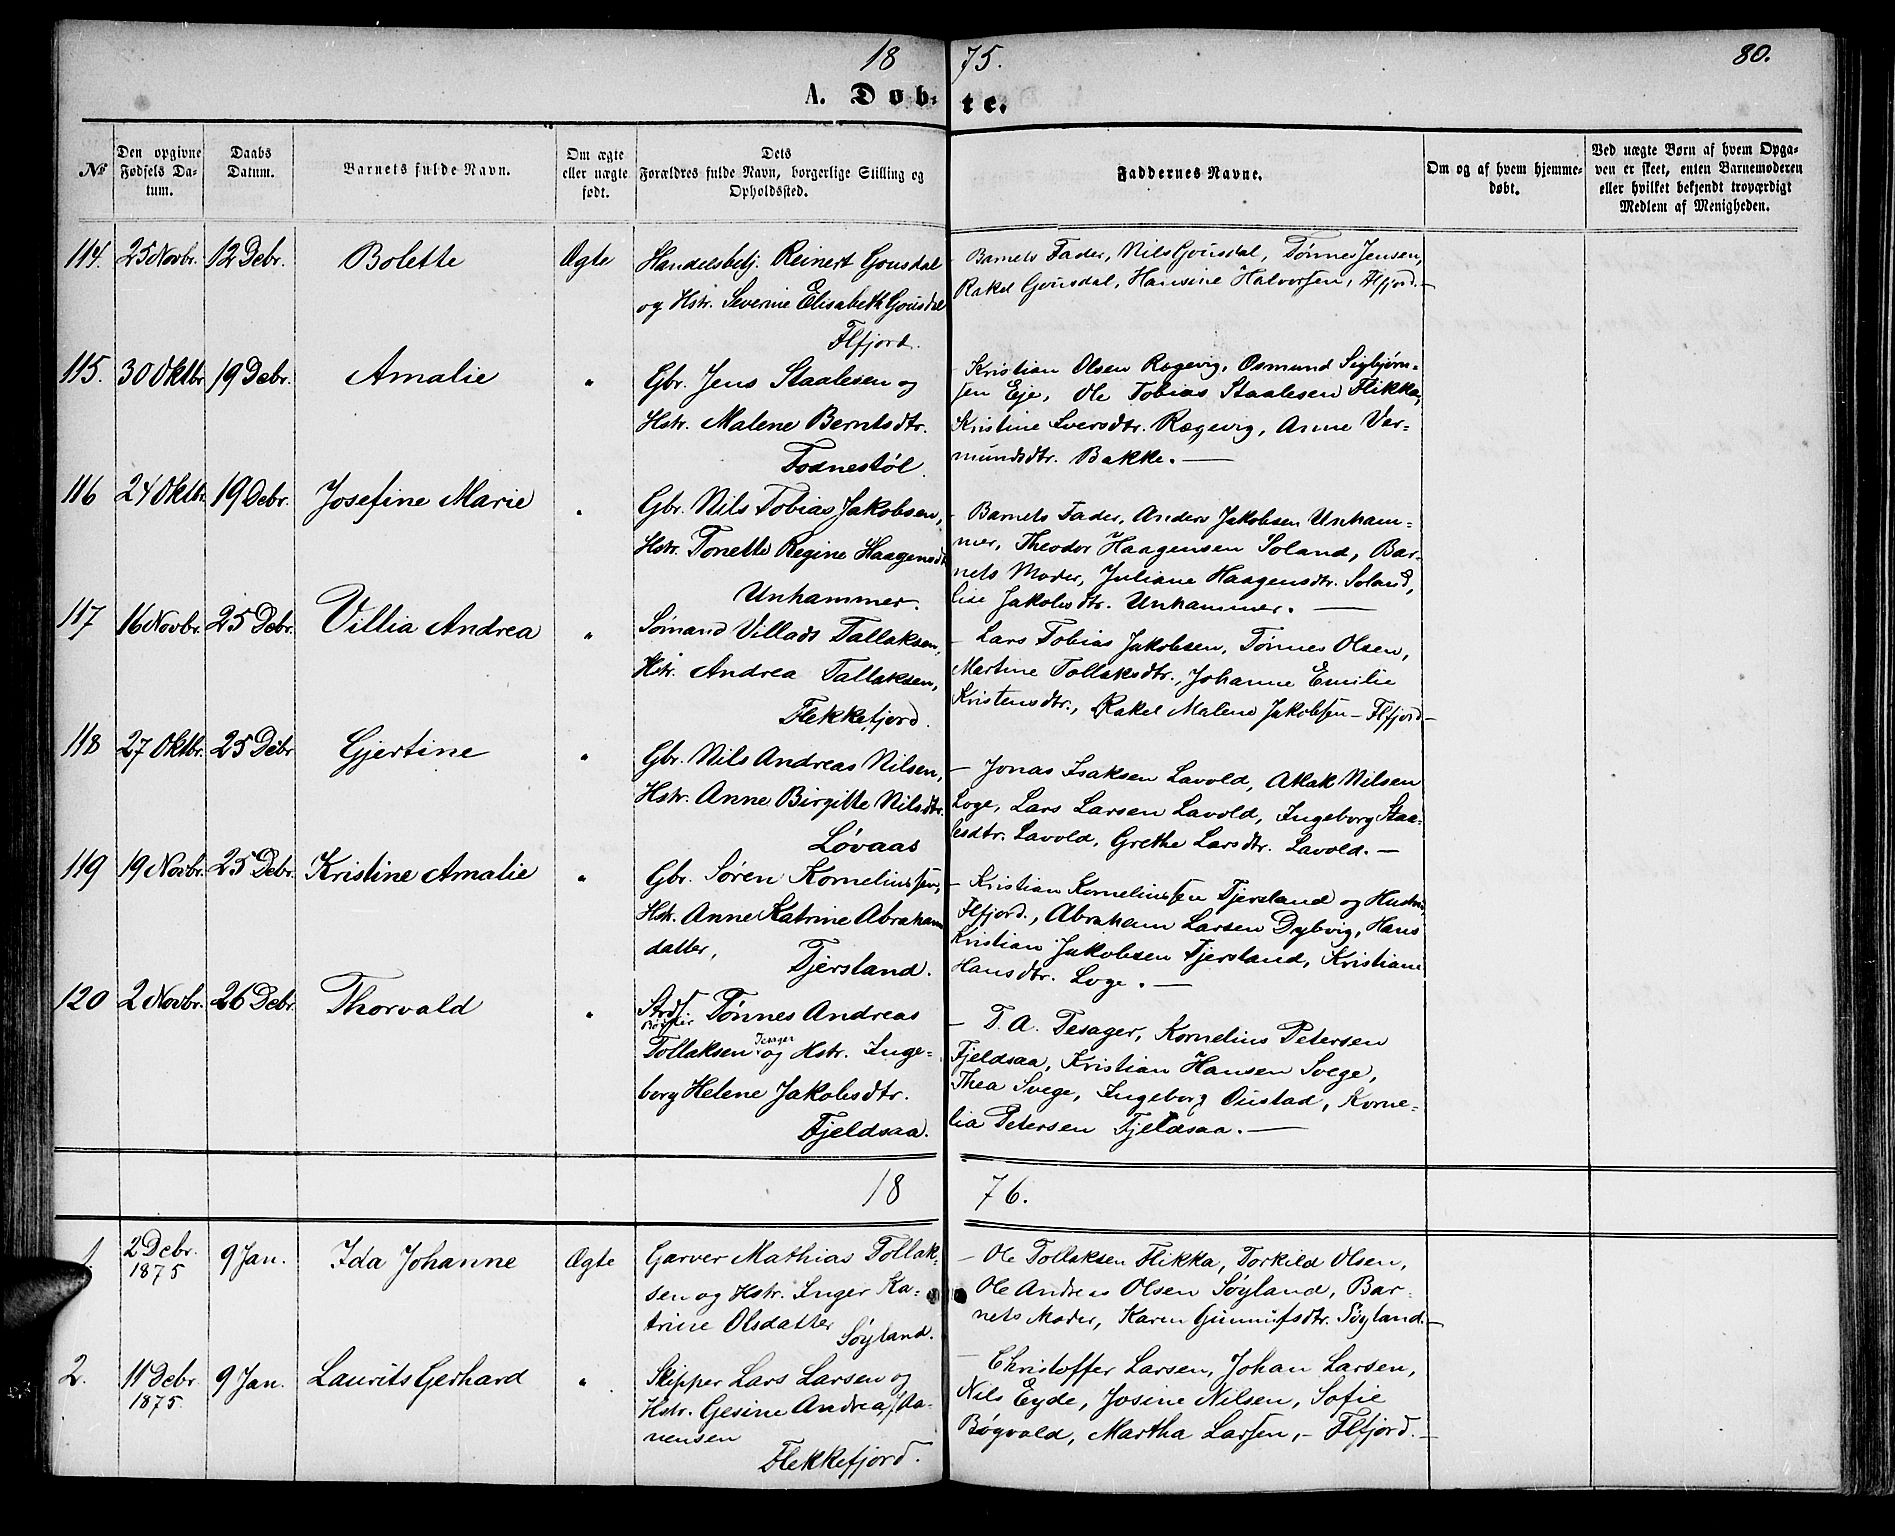 1875.
80.
A. Døbte.
No
Den opgivne Fødsels Datum.
Daabs Datum.
Barnets fulde Navn.
Om ægte eller uægte født.
Dets Forældres fulde Navn, borgerlige Stilling og Opholdssted.
Faddernes Navne.
Om og af hvem hjemmedøbt.
Ved uægte Børn af hvem Opgaven er skeet, enten Barnemoderen eller hvilket bekjendt troværdigt Medlem af Menigheden.
114. 25 Novbr. 12 Debr. Bolette Ægte
Handelsbetj. Reinert Gousdal
og Hstr. Severine Elisabeth Gousdal
Flfjord.
- Barnets Fader, Nils Gousdal, Tønnes Jensen,
Rakel Gousdal, Hansine Halvorsen, Flfjord.-
115. 30 Oktbr 19 Debr. Amalie "
Gbr. Jens Staalesen og
Hstr. Malene Berntsdtr.
Fodnestøl.
Kristian Olsen Rægevig, Osmund Sigbjørn-
sen Eje, Ole Tobias Staalesen Flikka,
Kristine Iversdtr. Rægevig, Anne Ver-
mundsdtr. Bakke.-
116 24 Oktbr. 19 Debr. Josefine Marie "
Gbr. Nils Tobias Jakobsen,
Hstr. Tonette Regine Haagensdtr
Unhammer.
- Barnets Fader, Anders Jakobsen Unham-
mer, Theodor Haagensen Soland, Bar-
nets Moder, Juliane Haagensdtr. Soland,
Lise Jakobsdtr. Unhammer.-
117 16 Novbr. 25 Debr. Villia Andrea "
Sømand Villads Tallaksen,
Hstr. Andrea Tallaksen,
Flekkefjord.
- Lars Tobias Jakobsen, Tønnes Olsen,
Martine Tollaksdtr., Johanne Emilie
Kristensdtr., Rakel Malene Jakobsen - Flfjord-
118 27 Oktbr. 25 Debr Gjertine "
Gbr. Nils Andreas Nilsen,
Hstr. Anne Birgitte Nilsdtr.
Løvaas
- Jonas Isaksen Lavold, Atlak Nilsen
Loge, Lars Larsen Lavold, Ingeborg Staa-
lesdtr. Lavold, Grethe Larsdtr. Lavold.-
119 19 Novbr. 25 Debr. Kristine Amalie "
Gbr. Søren Korneliussen,
Hstr. Anne Katrine Abrahams
datter,
Tjersland.
- Kristian Korneliussen Tjersland og Hustru
Flfjord., Abraham Larsen Dybvig, Hans
Kristian Jakobsen Tjersland, Kristiane
Hansdtr. Loge.-
120 2 Novbr. 26 Debr. Thorvald "
Tønnes Andreas
Tollaksen Tesager og Hstr. Inge-
borg Helene Jakobsdtr.
Fjeldsaa.
- T. A. Tesager, Kornelius Petersen
Fjeldsaa, Kristian Hansen Svege,
Thea Svege, Ingeborg Oustad, Korne-
lia Petersen Fjeldsaa.-
1876.
1. 2 Debr. 1875 9 Jan. Ida Johanne Ægte
Garver Mathias Tollak-
sen og Hstr. Inger Ka-
trine Olsdatter
Søyland.
- Ole Tollaksen Flikka, Torkild Olsen,
Ole Andreas Olsen Søyland, Bar-
nets Moder, Karen Gunnufsdtr. Søyland.-
2. 11 Debr 1875. 9 Jan. Laurits Gerhard "
Skipper Lars Larsen og
Hstr. Gesine Andrea
nensen
Flekkefjord.
- Christoffer Larsen, Johan Larsen,
Nils Eyde, Josine Nilsen, Sofie
Bøgvald, Martha Larsen, - Flfjord.-